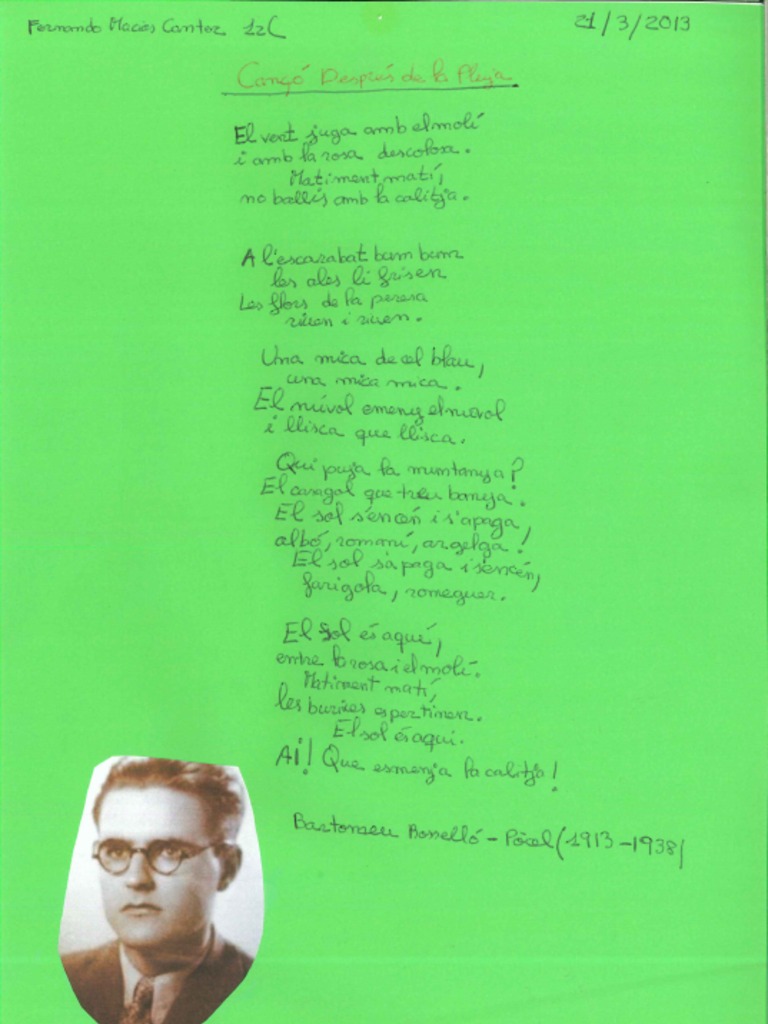 Fernando Macías Cantos 12C
21/3/2013
Cançó Després de la Pluja
El vent juga amb el molí
i amb la rosa descolosa.
Matiment matí,
no ballis amb la calitja.
A l'escarabat bum bum
les ales li frisen
Les flors de la peresa
riuen i riuen.
Una mica de cel blau,
una mica mica.
El núvol empeny el núvol
i llisca que llisca.
Qui puja la muntanya?
El caragol que treu banya.
El sol s'encén i s'apaga,
albó, romaní, argelga!
El sol s'apaga i s'encén,
farigola, romeguer.
El Sol és aquí,
entre la rosa i el molí.
Matiment matí,
les buixes
El sol és aquí.
Ai! Que esmenja la calitja!
Bartomeu Rosselló-Pòrcel (1913-1938)